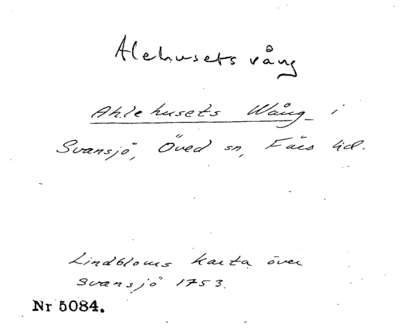 Alehusets vång
Ahlehusets Wång i
Svansjö, Öved sn, Färs hd.
Lindbloms karta över
Svansjö 1753.
Nr 5084.